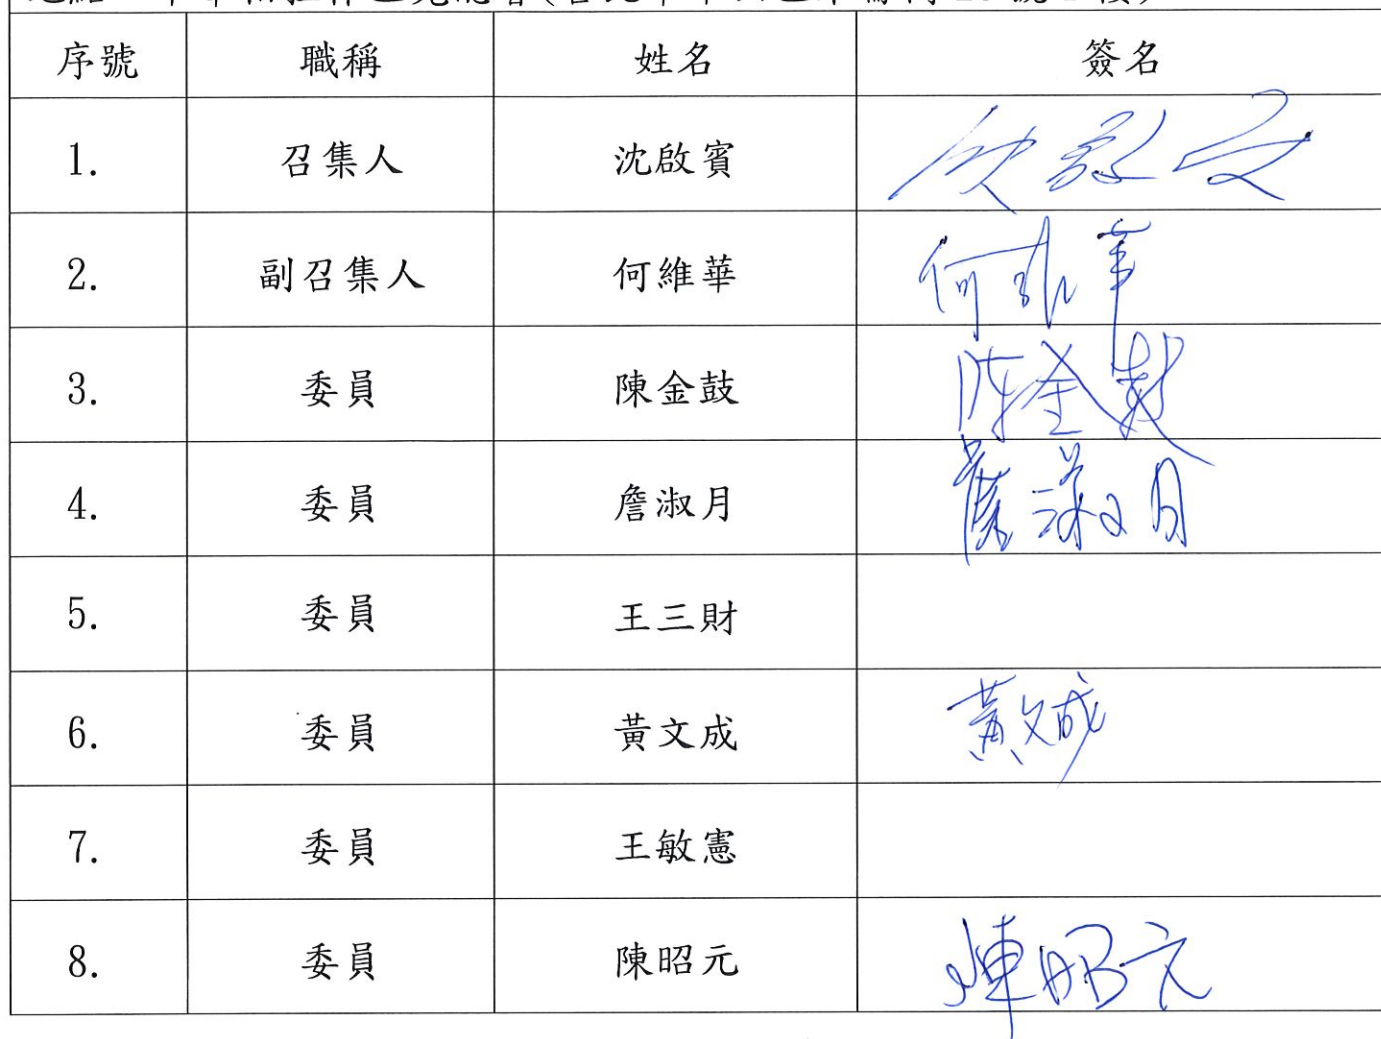 序號 職稱 姓名 簽名
1. 召集人 沈啟賓
2. 副召集人 何維華 何維華
3. 委員 陳金鼓 陳金鼓
4. 委員 詹淑月 詹淑月
5. 委員 王三財
6. 委員 黃文成 黃文成
7. 委員 王敏憲
8. 委員 陳昭元 陳昭元